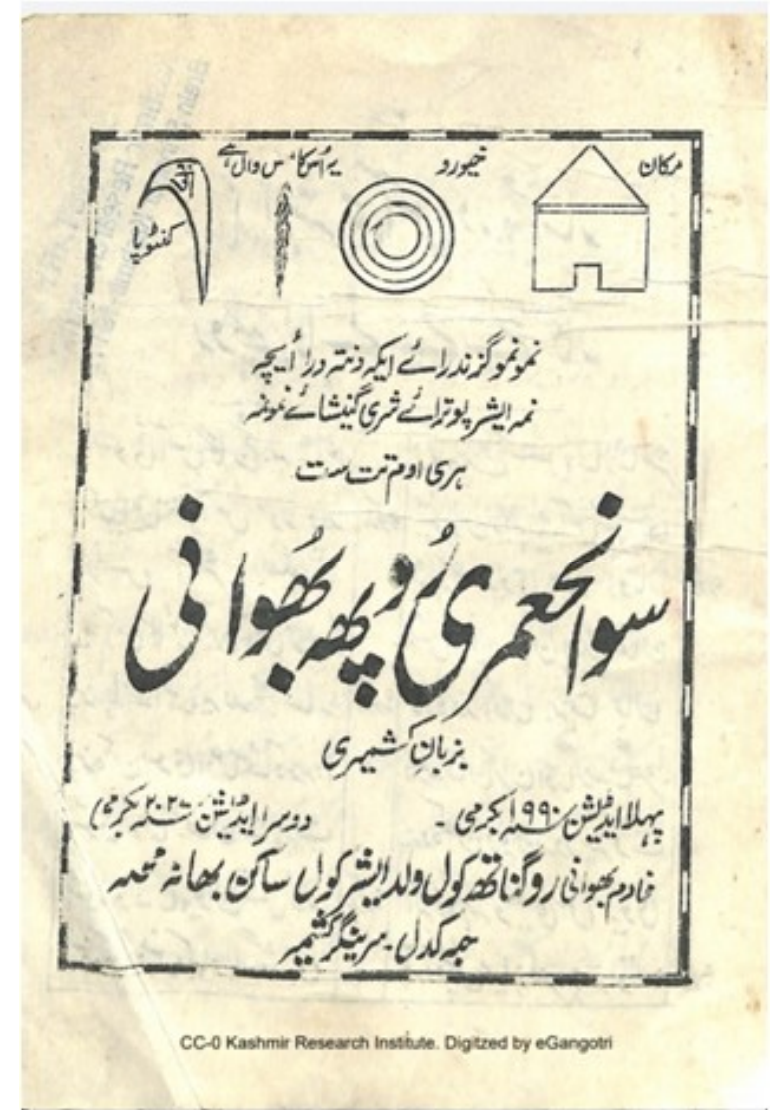 مکان
جیورد
یہ اُس کا س وال ہے
کنٹوپا
نمو نمو گزندرائے ایکہ دنتہ درائیچہ
نمہ ایشر پوترائے شری گنیشائے نمونمہ
ہری اوم تت ست
سوانحعمری رُوپھ بھوانی
بزبانِ کشمیری
پہلا ایڈیشن ۱۹۹۰ بکرمی - دوسرا ایڈیشن ۲۰۲۷ بکرمی
خادم بھوانی روگناتھ کول ولد ایشر کول ساکن بھانہ محلہ
حبہ کدل سرینگر کشمیر
CC-0 Kashmir Research Institute. Digitzed by eGangotri